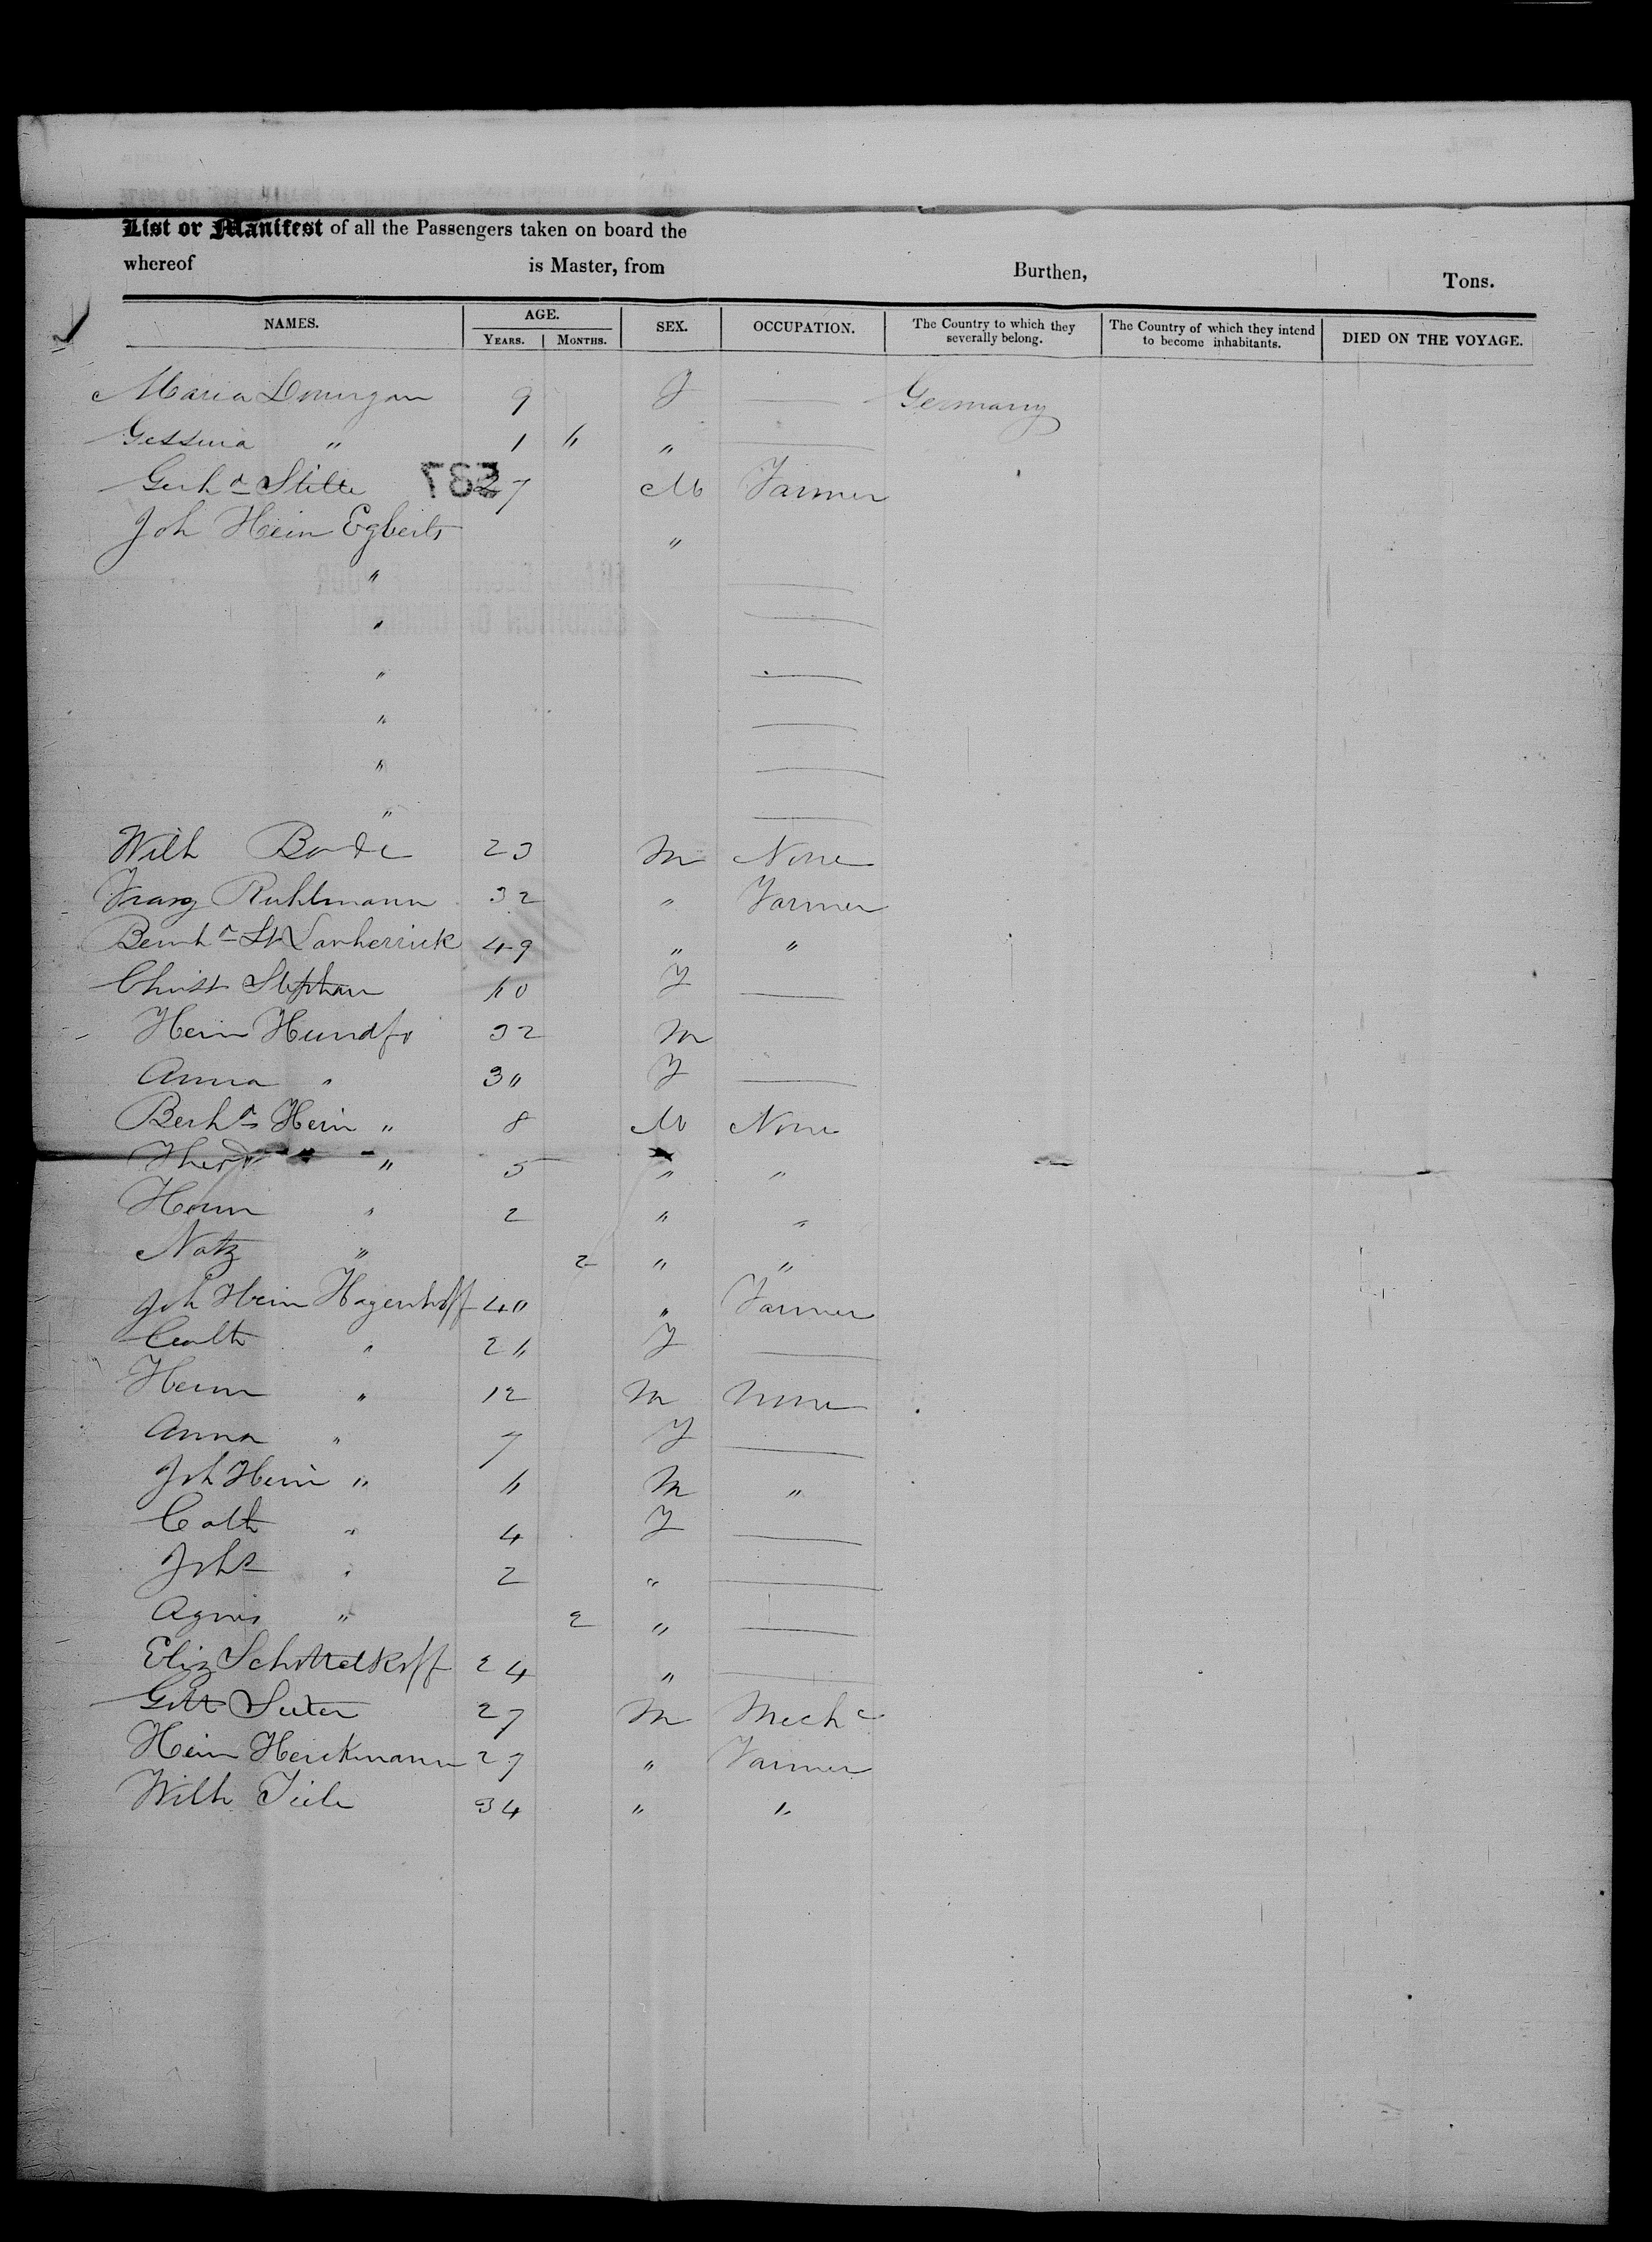 List or Manifest of all the Passengers taken on board the
whereof is Master, from Burthen, Tons.
NAMES. AGE. YEARS. MONTHS. SEX. OCCUPATION. The Country to which they severally belong. The Country of which they intend to become inhabitants. DIED ON THE VOYAGE.
Maria 9 F — Germany
Gessina " 1 6 " —
Gerhd Stille 27 M Farmer
587
Joh Hein Egberts "
" —
" —
" —
" —
" —
" —
Wilh Bode 23 M None
Franz Ruhlmann 32 " Farmer
Bernhd 49 " "
Christ Stephan 60 F —
Hein 32 M
Anna " 30 F —
Berhd Hein " 8 M None
" 5 " "
Herm " 2 " "
Natz " 2 " "
Joh Hein Hagenhoff 40 " Farmer
Cath " 26 F —
Herm " 12 M None
Anna " 7 F —
Joh Hein " 6 M "
Cath " 4 F —
Joha " 2 " —
Agnis " 2 " —
Eliz Schottelkoff 24 " —
Gott Suter 27 M Mechc
Hein Henckmann 27 " Farmer
Wilh 34 " "